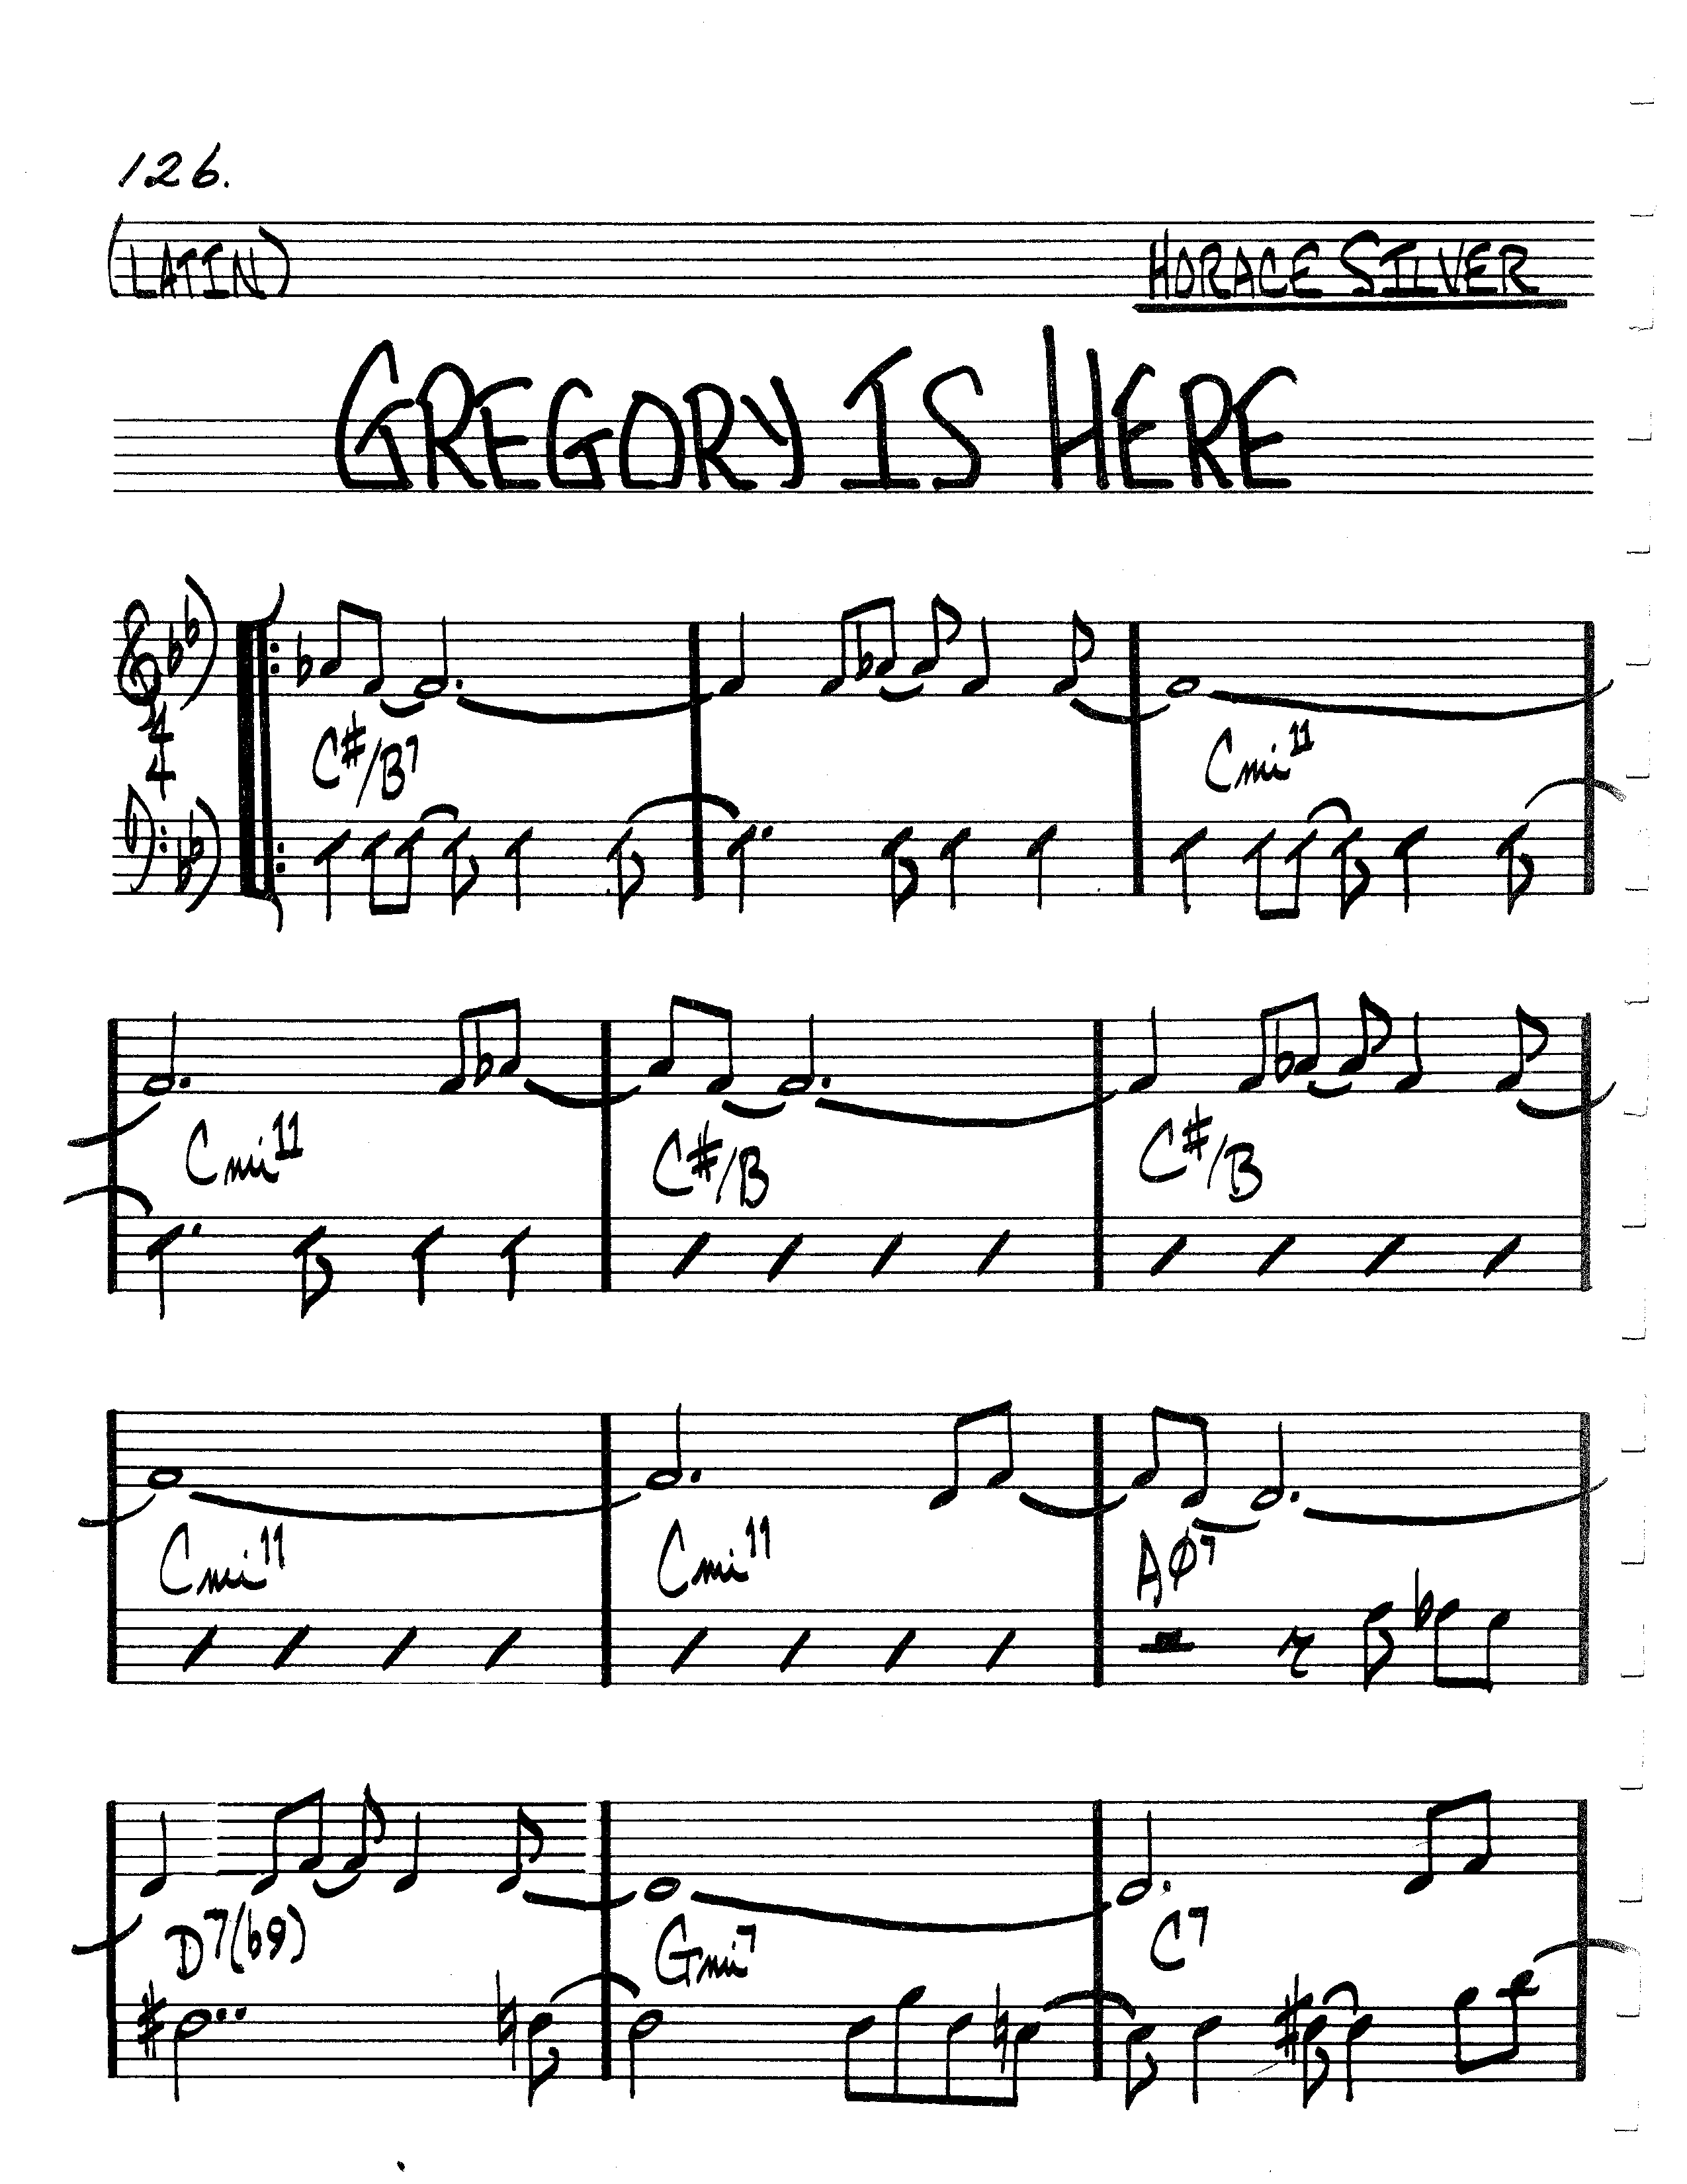 126.
(LATIN) HORACE SILVER
GREGORY IS HERE
4
4
C#/B7 Cmi11
Cmi11 C#/B C#/B
Cmi11 Cmi11 AØ7
D7(b9) Gmi7 C7